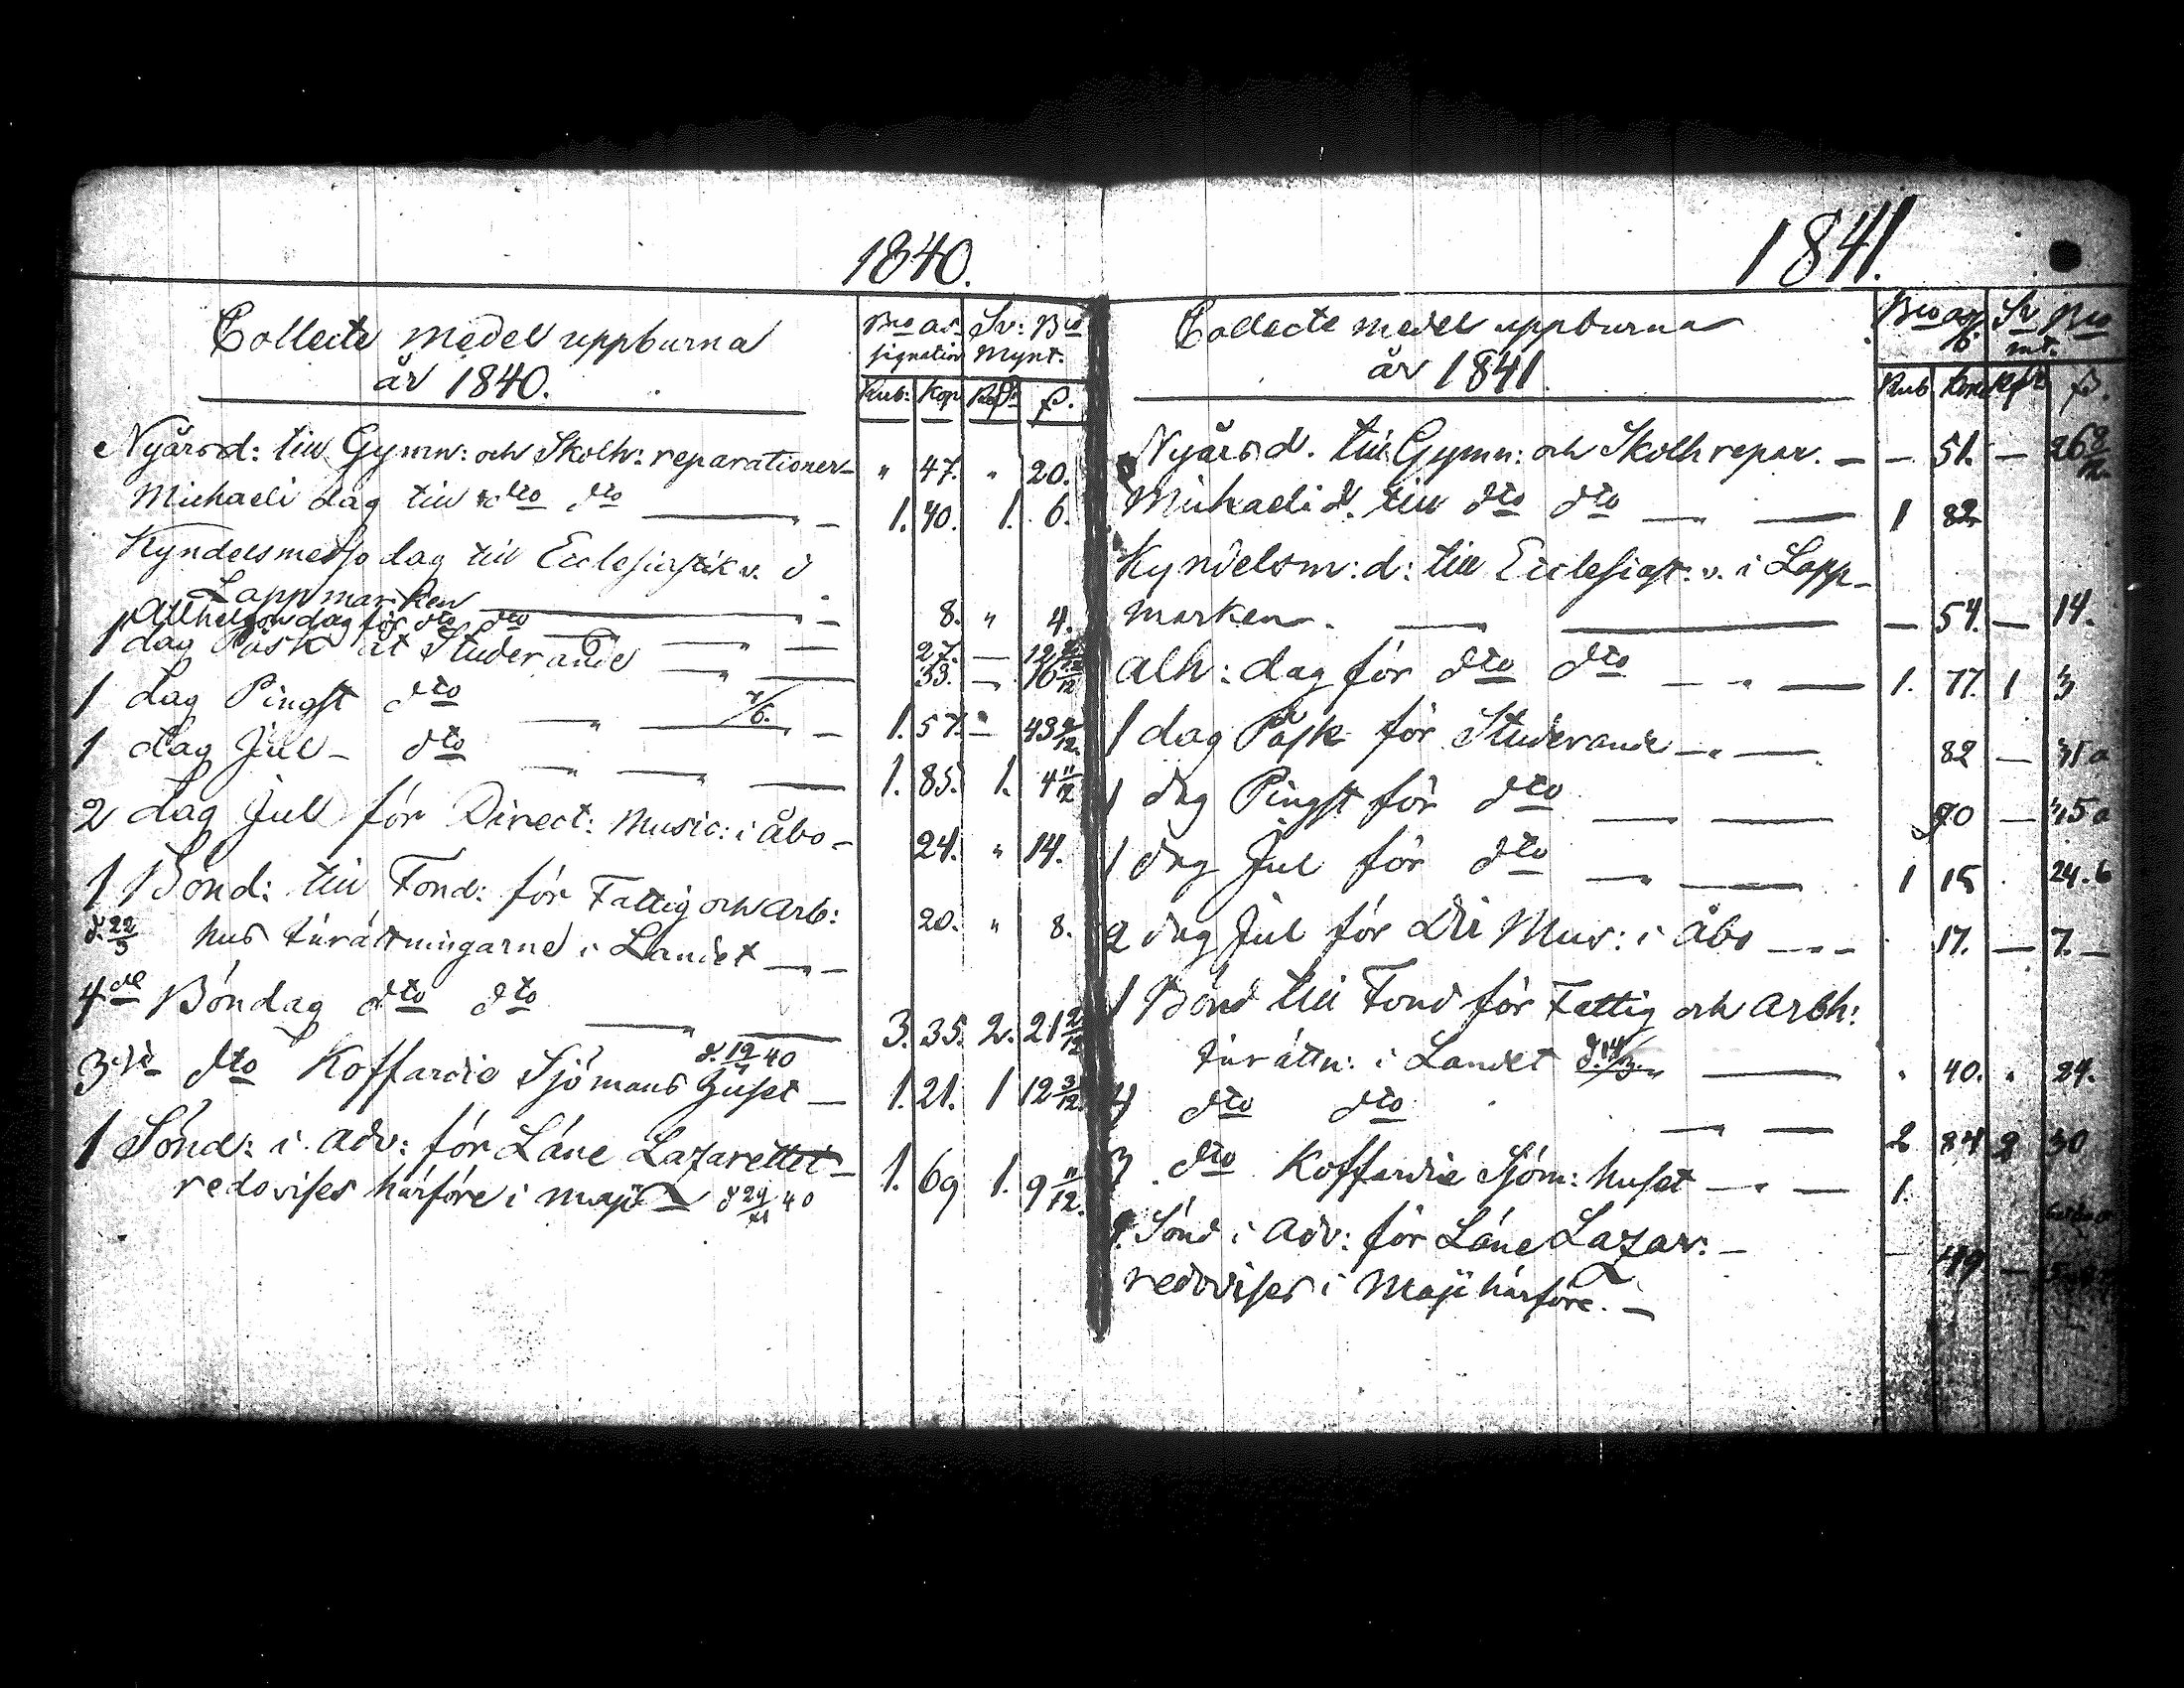 1840.
Collecte medel uppburna
år 1840.
Bco as- Sv: Bco
signation Mynt.
Rub: Kop Rdr β.
Nyårsd: till Gymn: och Skolh: reparationer – " 47. " 20.
Michaeli dag till dto dto — 1. 40. 1. 6.
Kyndelsmesso dag till Ecclesiastik v. i
Lappmarken — 8. " 4.
Allhelgon dag för dto dto — 27. — 12
1 dag Påsk åt Studerande — 33. — 16
1 dag Pingst dto — 1. 57. " 43
1 dag Jul – dto — 1. 85. 1. 4 11/12
2 dag Jul för Direct: Music: i Åbo – 24. " 14.
1 Bönd: till Fond: för Fattig och Arb:
d. 22/3 hus inrättningarne i Landet — 20. " 8.
4de Böndag dto dto — 3. 35. 2. 21 2/12
3die dto Koffardie Sjömans Huset — 1. 21. 1 12 3/12
1 Sönd: i Adv: för Läne Lazarettet – 1. 69 1. 9 11/12.
redovises härföre i maji
1841.
Collecte medel uppburna
år 1841.
Bco Sv Bco
mt.
Rub β.
Nyårsd. till Gymn: och Skolh repar. – – 51. – 26 8/12.
Michaeli d. till dto dto — 1 82
Kyndelsm: d: till Ecclesiast: v. i Lapp-
marken. — 54. — 14.
Alh: dag för dto dto — 1. 77. 1 3
1 dag Påsk för Studerande — 82 —
1 dag Pingst för dto — 90 —
1 dag Jul för dto — 1 15 24. 6
2 dag Jul för Dir Mus: i Åbo — 17. — 7. –
1 Bönd till Fond för Fattig och Arbh:
inrättn: i Landet — " 40. " 24.
4 dto dto — 2 84 2 30
3 dto Koffardie Sjöm: huset — 1.
1. Sönd i Adv: för Läne Lazar: – – 49 –
redovises i Maji härföre. –